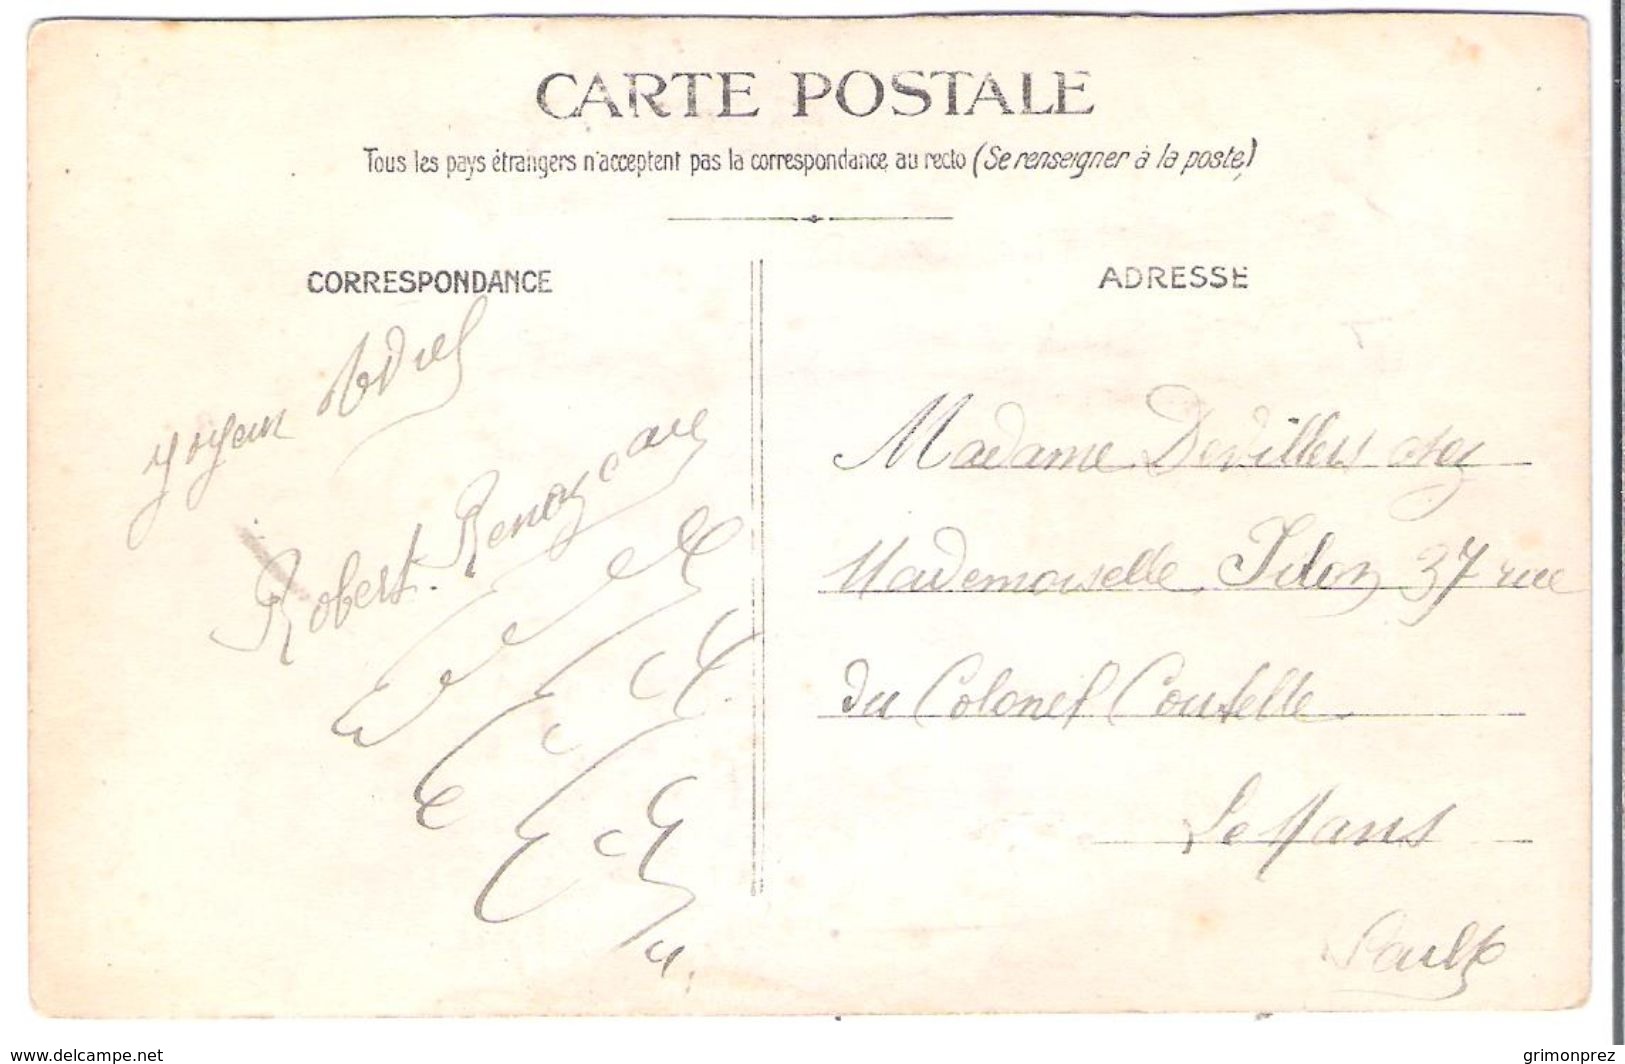 CARTE POSTALE
Tous les pays étrangers n'acceptent pas la correspondance au recto (Se renseigner à la poste)
CORRESPONDANCE
ADRESSE
Robert
Madame Devillers chez
Mademoiselle 37 rue
du Colonel Coutelle
Le Mans
Sarthe
www.delcampe.net
grimonprez